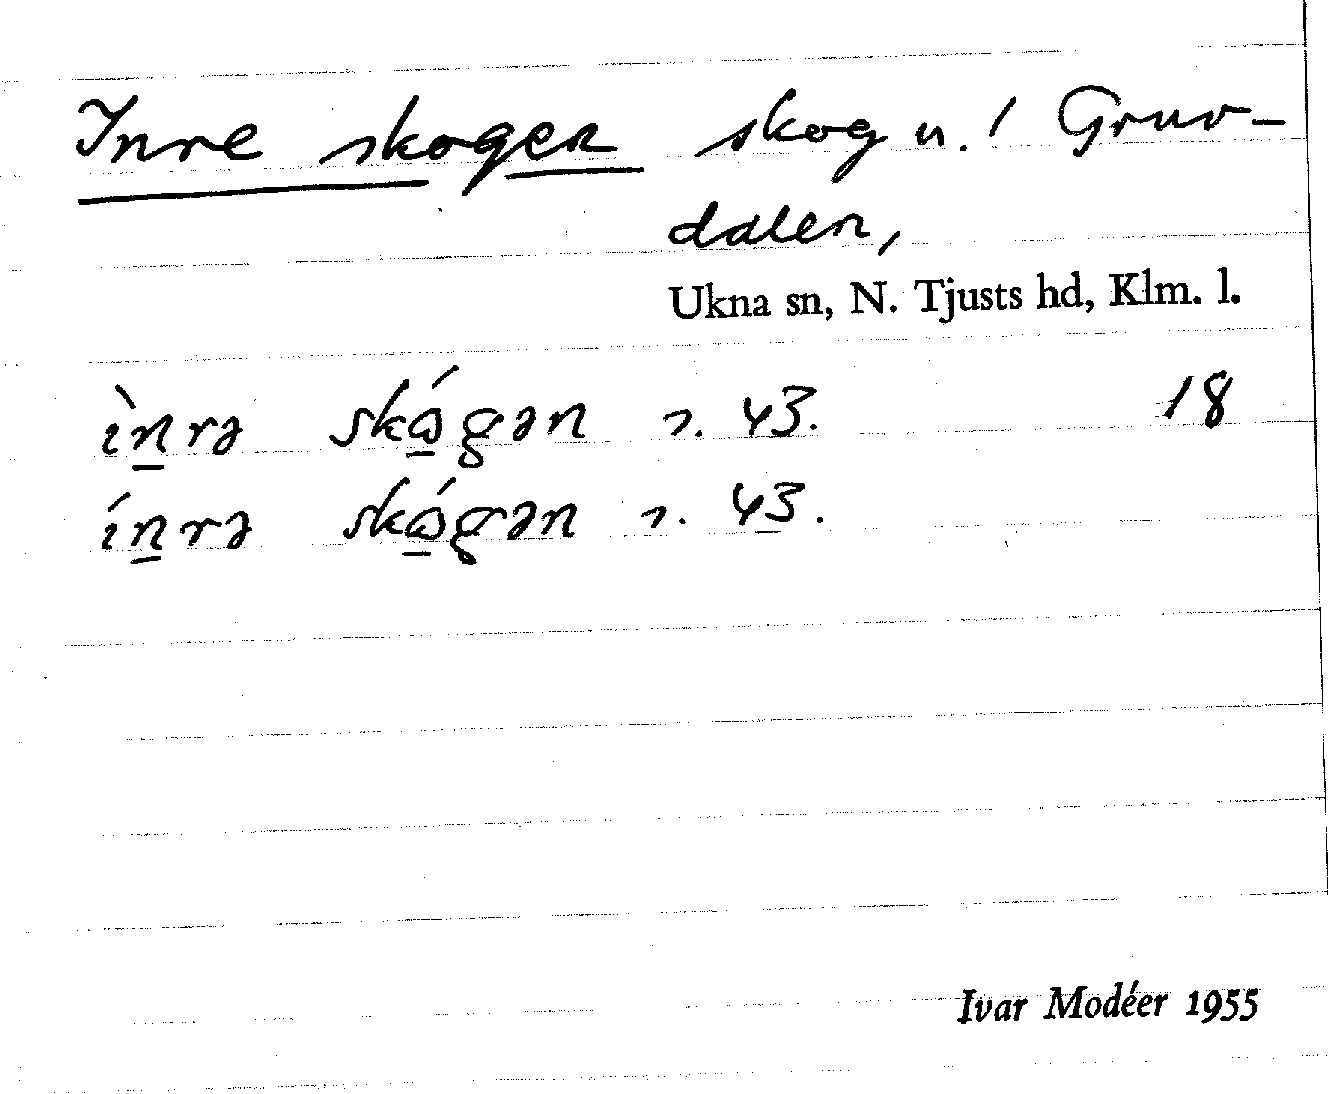 Inre skogen skog u. / Gruv-
dalen,
Ukna sn, N. Tjusts hd, Klm. l.
ìn̲rə skó̲gən 2. 43. 18
ín̲rə skó̲gən 2. 43̲.
Ivar Modéer 1955